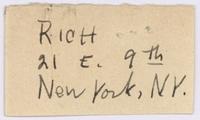 RICH
21 E. 9th
New York, NY.